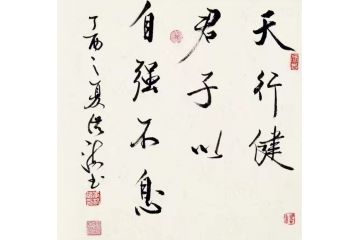 天行健
君子以
自强不息
丁酉之夏洪涛书